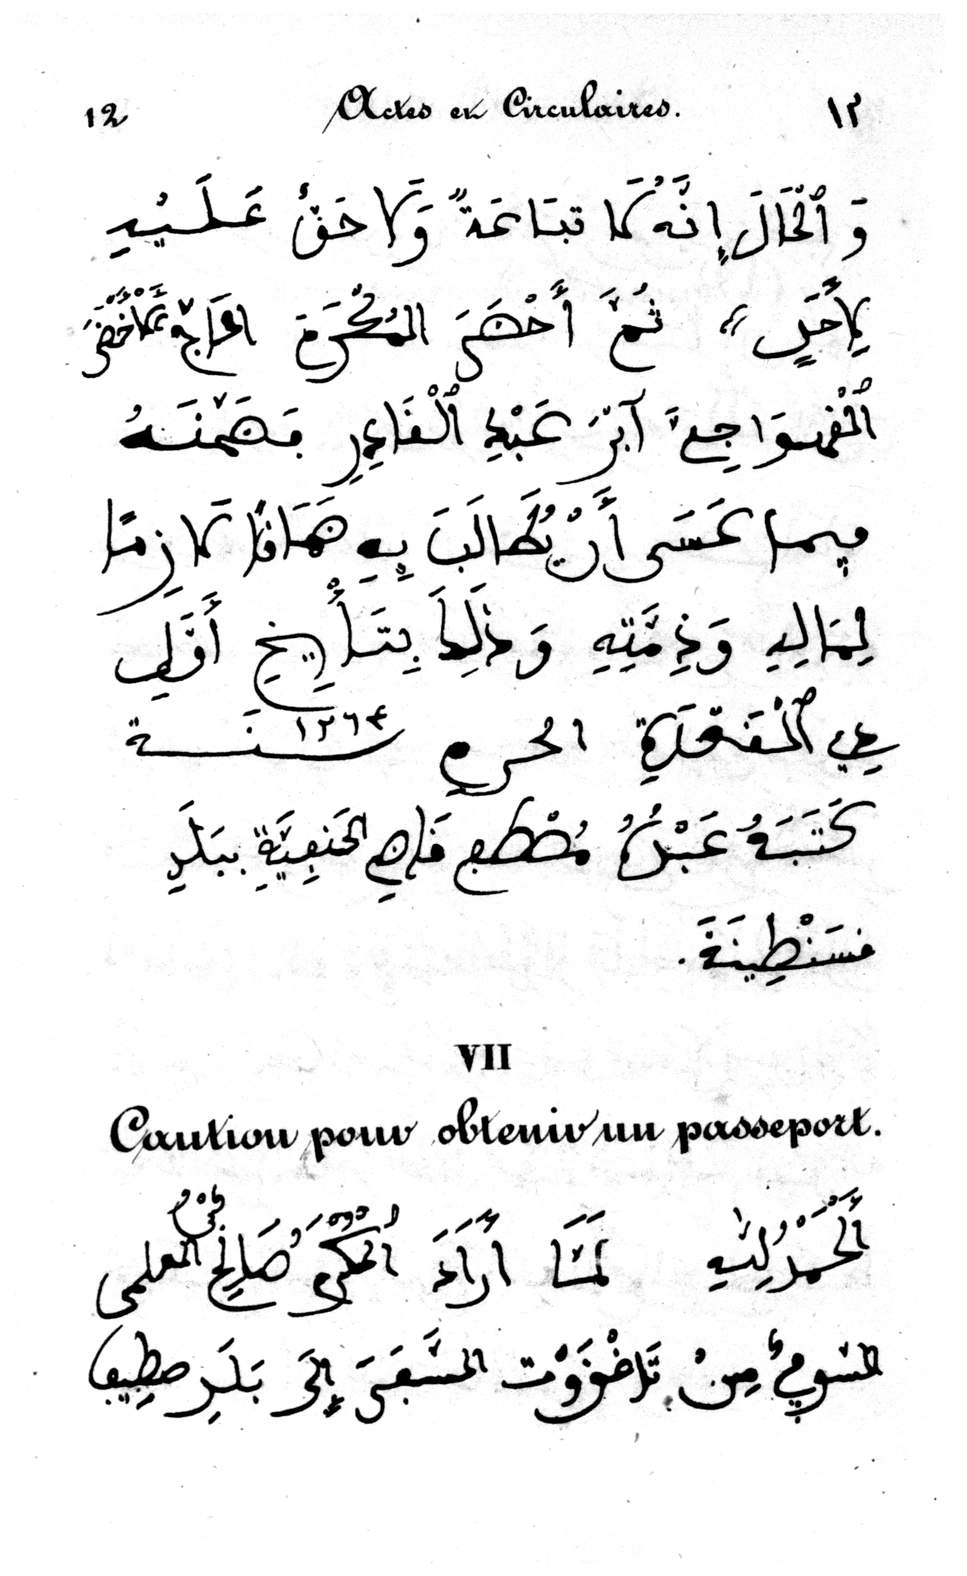 12 Actes et Circulaires. ١٢
وَٱلْحَالَ إِنَّهُ لَا تِبَاعَةً وَلَا حَقَّ عَلَيْهِ
لِأَحَدٍ ثُمَّ أَحْضَرَ المُكَرَّمَ الحَاجّ الأَخْضَرَ
ٱبْنَ عَبْدِ ٱلْقَادِرِ فَضَمَنَهُ
فِيمَا عَسَى أَنْ يُطَالَبَ بِهِ ضَمَانًا لَازِمًا
لِمَالِهِ وَذِمَّتِهِ وَذَلِكَ بِتَأْرِيخِ أَوَّلِ
ذِي ٱلْقَعْدَةِ الحرم سَنَة ١٢٦٤
كَتَبَهُ عَبْدُهُ مُصْطَفى قَاضِي الحَنَفِيَّةِ بِبَلَدِ
قسَنْطِينَةَ.
VII
Caution pour obtenir un passeport.
أَلْحَمْدُ لِلَّهِ لَمَّا أَرَادَ المُكَرَّمُ صَالِح
مِنْ السَّفَرَ إِلَى بَلَدِ سطِيف